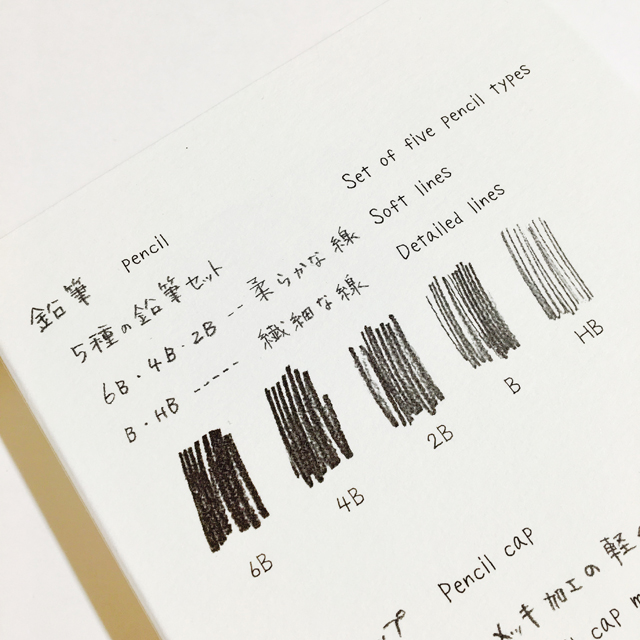 鉛筆 pencil
5種の鉛筆セット Set of five pencil types
6B・4B・2B -- 柔らかな線 Soft lines
B・HB ----- 繊細な線 Detailed lines
6B 4B 2B B HB
プ Pencil cap
メッキ加工の軽
cap m